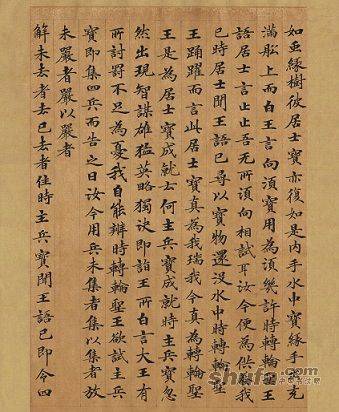 如虫緣樹彼居士寶亦復如是內手水中寶緣手出充
滿船上而白王言向須寶用為須幾許時轉輪聖王
語居士言止止吾無所須向相試耳汝今便為供養我
已時居士聞王語已尋以寶物還没水中時轉輪聖
王踊躍而言此居士寶真為我瑞我今真為轉輪聖
王是為居士寶成就云何主兵寶成就時主兵寶忽
然出現智謀雄猛英略獨決即詣王所白言大王有
所討罰不足為憂我自能辦時轉輪聖王欲試主兵
寶即集四兵而告之曰汝今用兵未集者集以集者放
未嚴者嚴以嚴者
解未去者去已去者住時主兵寶聞王語已即令四
Shufa.com